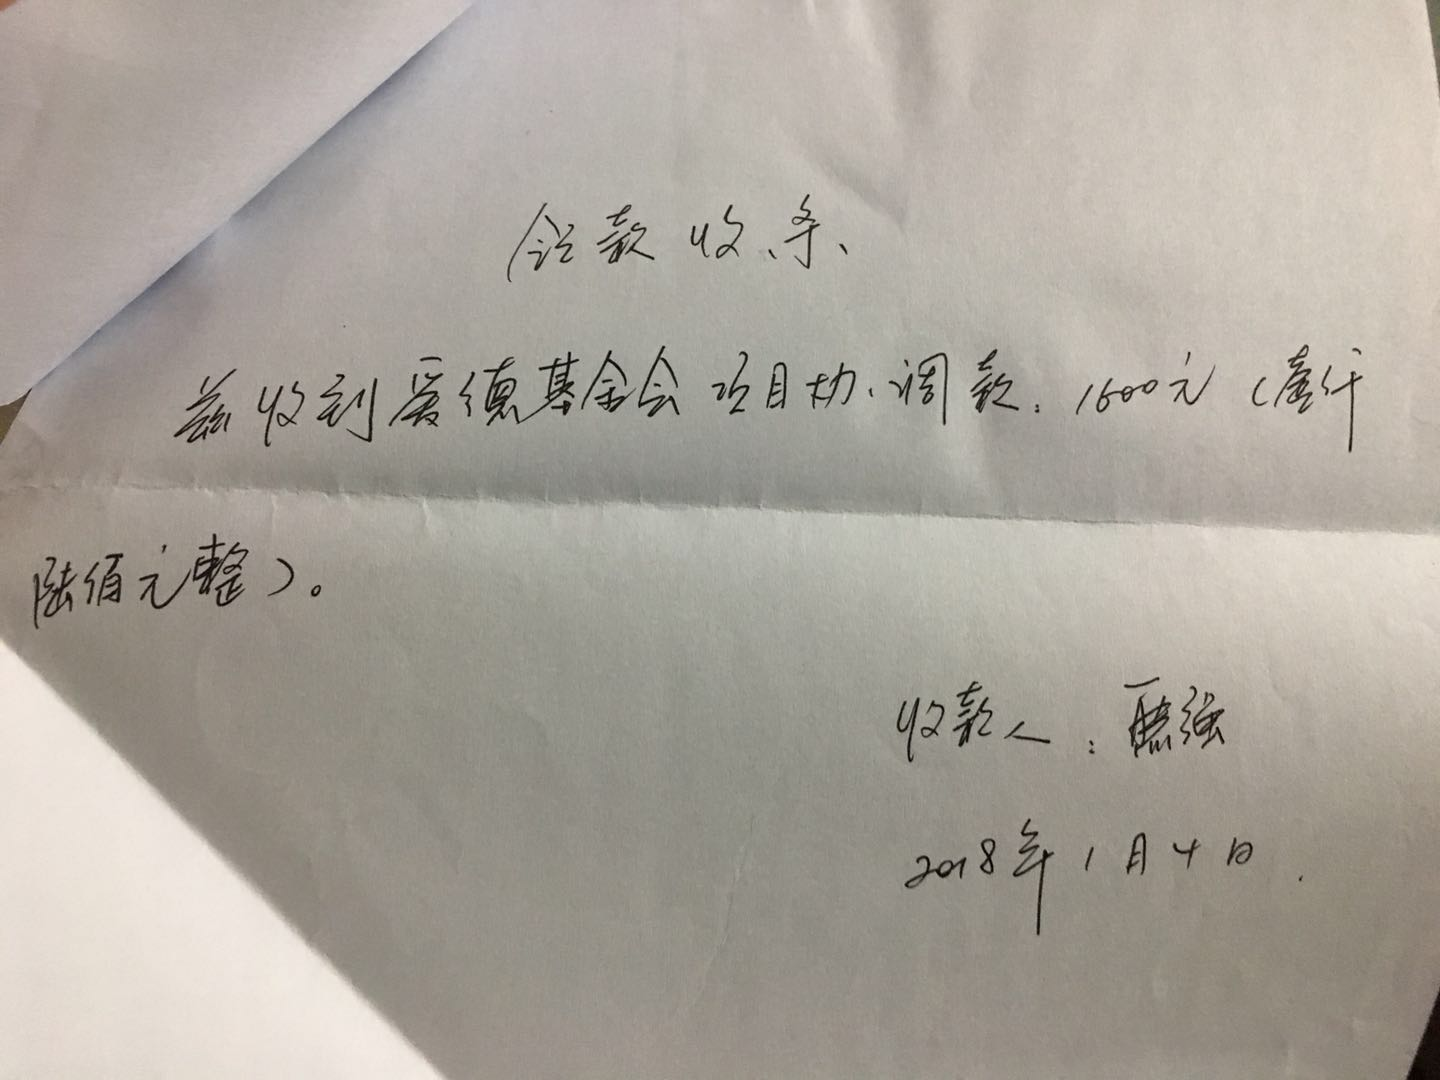 领款收条
兹收到爱德基金会项目协调款:1600元(壹仟
陆佰元整)。
收款人:强
2018年1月4日.